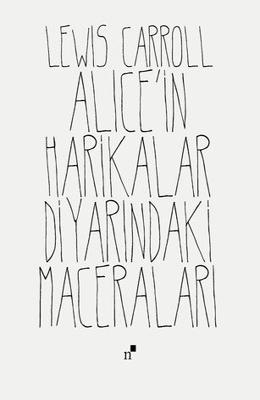 LEWIS CARROLL
ALICE'İN
HARİKALAR
DİYARINDAKİ
MACERALARI
n